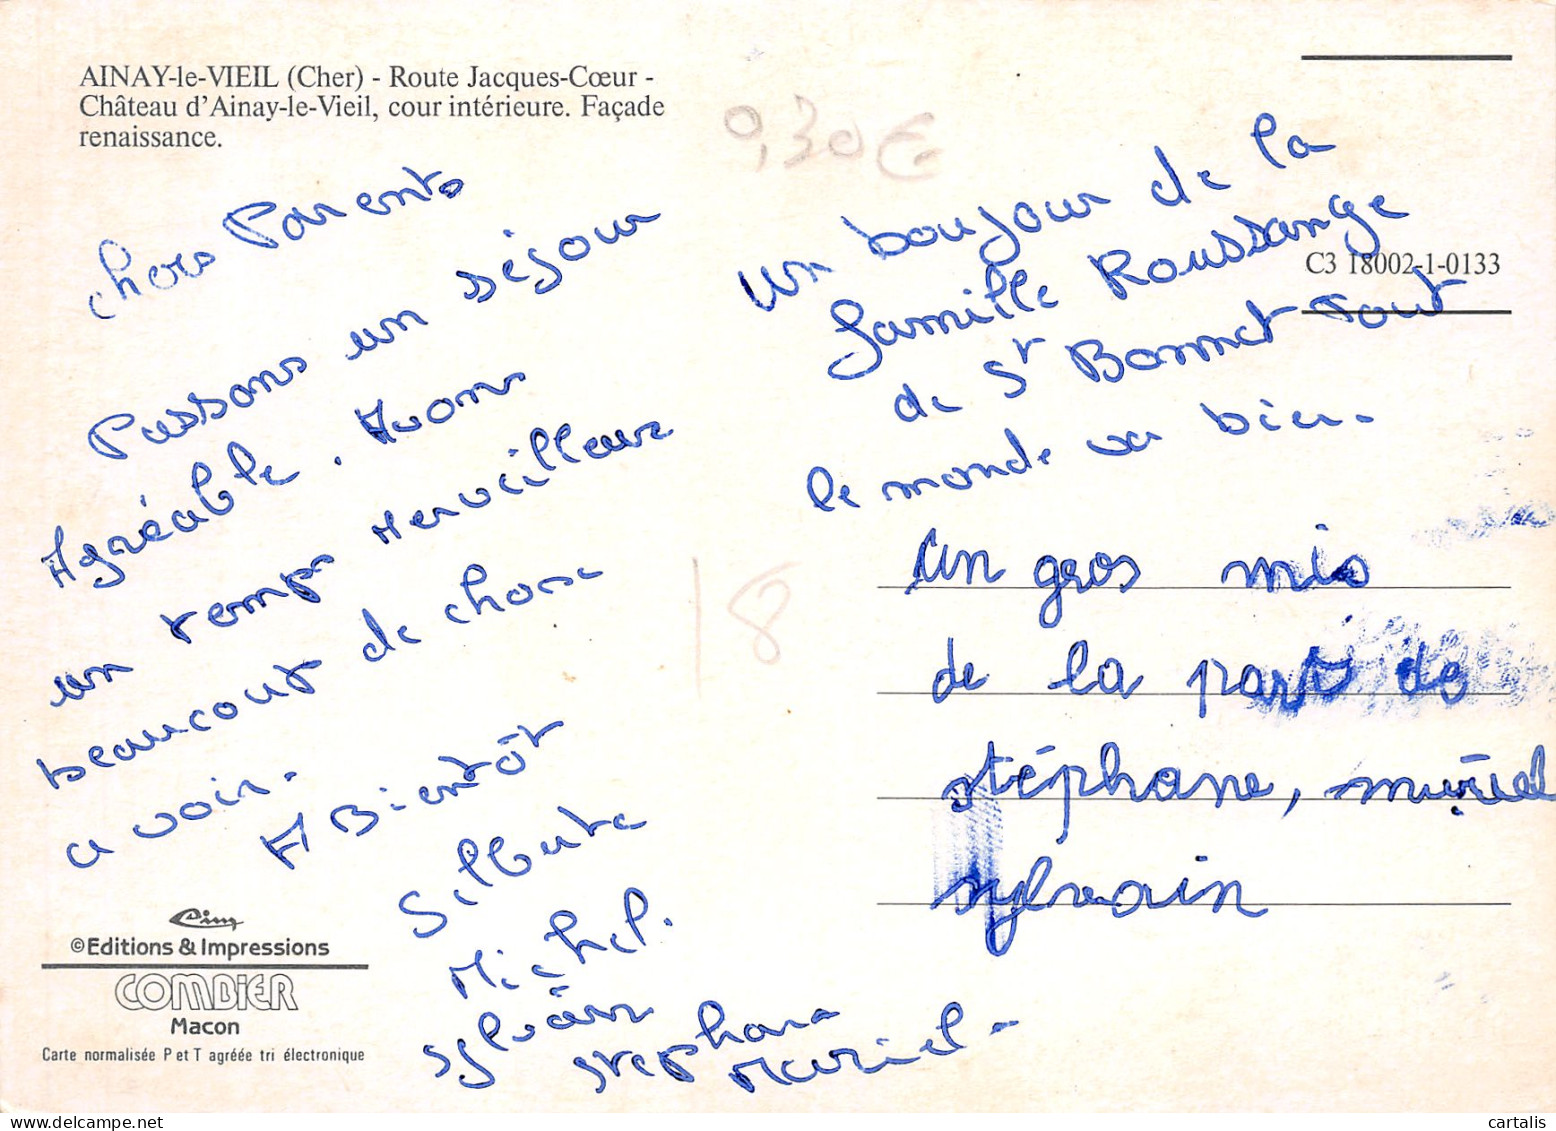 AINAY-le-VIEIL (Cher) - Route Jacques-Cœur -
Château d'Ainay-le-Vieil, cour intérieure. Façade
renaissance.
0,30€
chers Parents
Passons un séjour
Agréable. Avons
un temps Merveilleux
beaucoup de chose
a voir.
A Bientôt
Gilberte
Michel.
Sylvain
Stephane
Muriel -
18
Un bonjour de la
famille Roussange
C3 18002-1-0133
de St Bonnet Tout
le monde va bien.
Un gros mis
de la part de
stéphane, muriel
sylvain
Cim
©Editions & Impressions
COMBIER
Macon
Carte normalisée P et T agréée tri électronique
cartalis